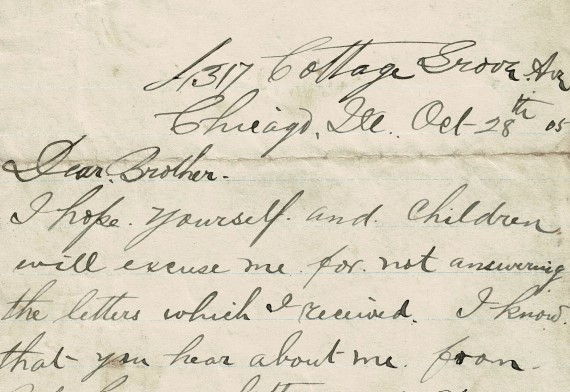 4317 Cottage Grove Ave
Chicago, Ill. Oct-28th 05
Dear Brother.
I hope yourself and children
will excuse me for not answering
the letters which I received. I know
that you hear about me from